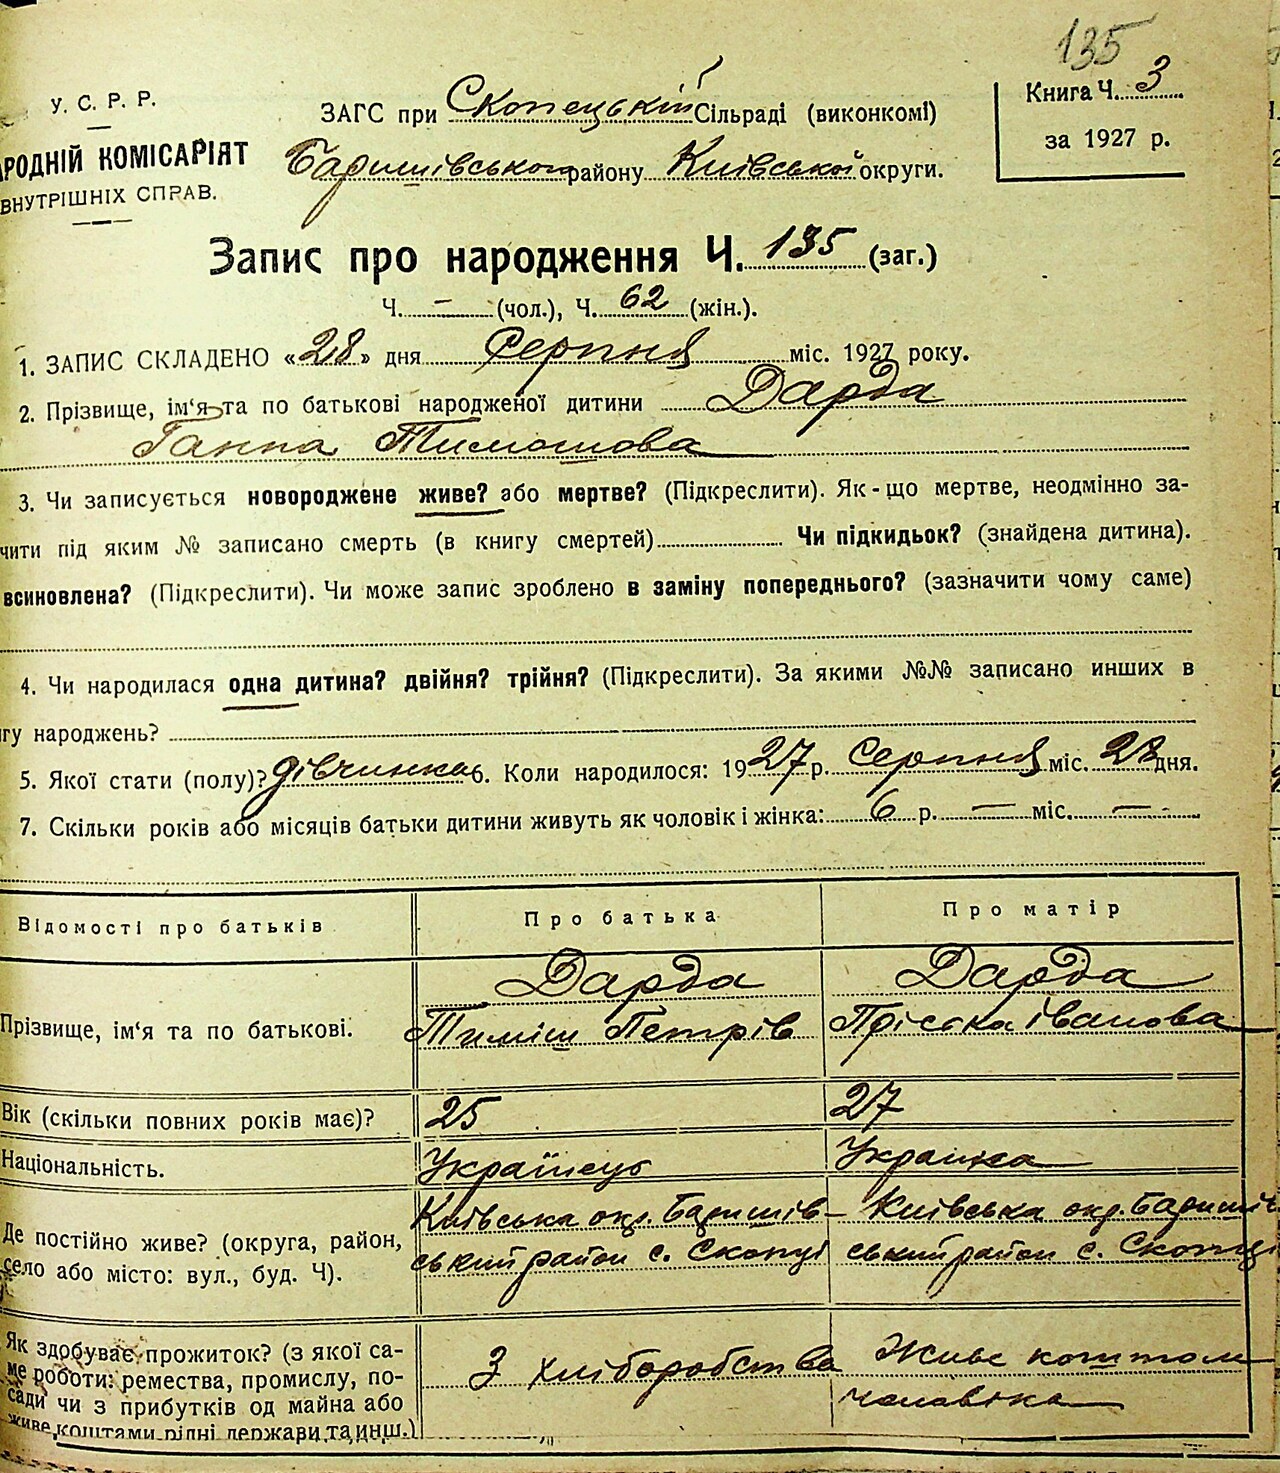 135
У. С. Р. Р.
РОДНІЙ КОМІСАРІЯТ
ВНУТРІШНІХ СПРАВ.
ЗАГС при Скопецькій Сільраді (виконкомі)
Баришівського району Київської округи.
Книга Ч. 3
за 1927 р.
Запис про народження Ч. 135 (заг.)
Ч. — (чол.), Ч. 62 (жін.).
1. ЗАПИС СКЛАДЕНО «28» дня Серпня міс. 1927 року.
2. Прізвище, ім'я та по батькові народженої дитини Дарда
Ганна Тимошова
3. Чи записується новороджене живе? або мертве? (Підкреслити). Як-що мертве, неодмінно за-
чити під яким № записано смерть (в книгу смертей) Чи підкидьок? (знайдена дитина).
всиновлена? (Підкреслити). Чи може запис зроблено в заміну попереднього? (зазначити чому саме)
4. Чи народилася одна дитина? двійня? трійня? (Підкреслити). За якими №№ записано инших в
гу народжень?
5. Якої стати (полу)? дівчинка 6. Коли народилося: 1927 р. Серпня міс. 28 дня.
7. Скільки років або місяців батьки дитини живуть як чоловік і жінка: 6 р. — міс. —
Відомості про батьків
Про батька
Про матір
Прізвище, ім'я та по батькові.
Дарда
Тиміш Петрів
Дарда
Пріська Іванова
Вік (скільки повних років має)?
25
27
Національність.
Українець
Украінка
Де постійно живе? (округа, район,
село або місто: вул., буд. Ч).
Київська окр. Баришів-
ський район с. Скопці
Київська окр. Баришів
ський район с. Скопці
Як здобуває прожиток? (з якої са-
ме роботи: ремества, промислу, по-
сади чи з прибутків од майна або
живе коштами рідні держави та инш.)
З хліборобства
Живе коштом
чоловіка